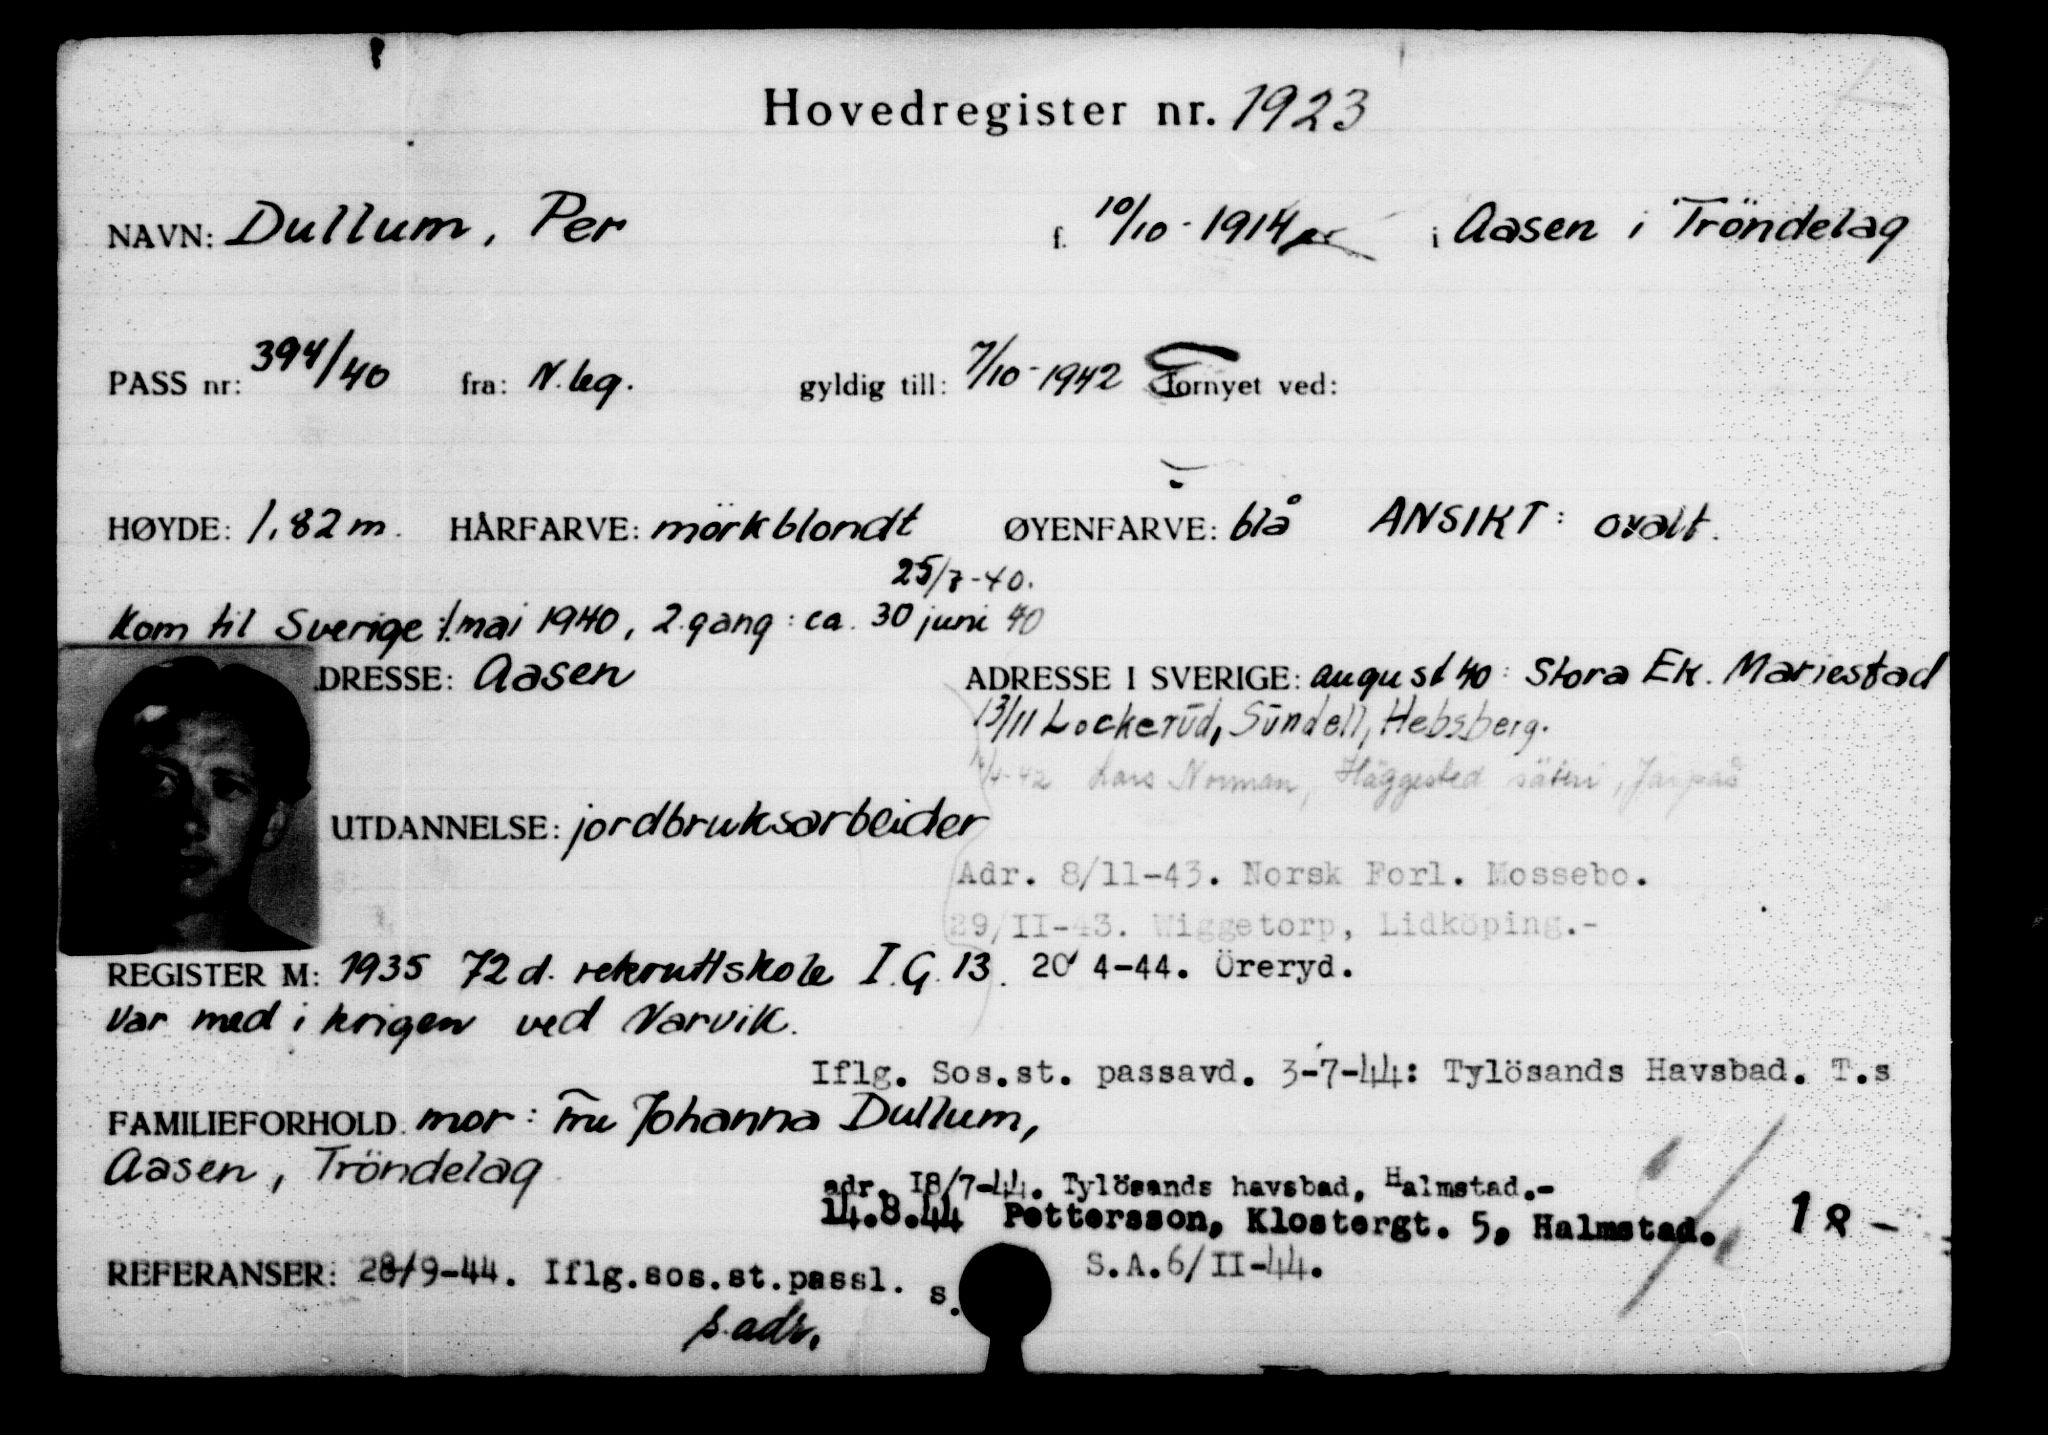 Hovedregister nr. 1923
NAVN: Dullum, Per f. 10/10 - 1914 i Aasen i Tröndelag
PASS nr: 394/40 fra: N. leg. gyldig till: 7/10 - 1942 fornyet ved:
HØYDE: 1,82 m. HÅRFARVE: mörkblondt ØYENFARVE: blå ANSIKT: ovalt.
25/7-40.
Kom til Sverige: 1. mai 1940, 2. gang: ca. 30 juni 40
DRESSE: Aasen ADRESSE I SVERIGE: august 40: Stora Ek. Mariestad
13/11 Lockerud, Sundell, Hebsberg.
Lars Norman, Häggested
UTDANNELSE: jordbruksarbeider
Adr. 8/11-43. Norsk Forl. Mossebo.
29/II-43. Wiggetorp, Lidköping.-
REGISTER M: 1935 72 d. rekruttskole I.G. 13. 20/4-44. Öreryd.
Var med i krigen ved Narvik.
Iflg. Sos.st. passavd. 3-7-44: Tylösands Havsbad. T.s
FAMILIEFORHOLD. mor: Fru Johanna Dullum,
Aasen, Tröndelag
adr. I8/7-44. Tylösands havsbad, Halmstad.-
14.8.44 Pettersson, Klostergt. 5, Halmstad.
REFERANSER: 28/9-44. Iflg.sos.st.passl. s. S.A.6/II-44.
s. adr.